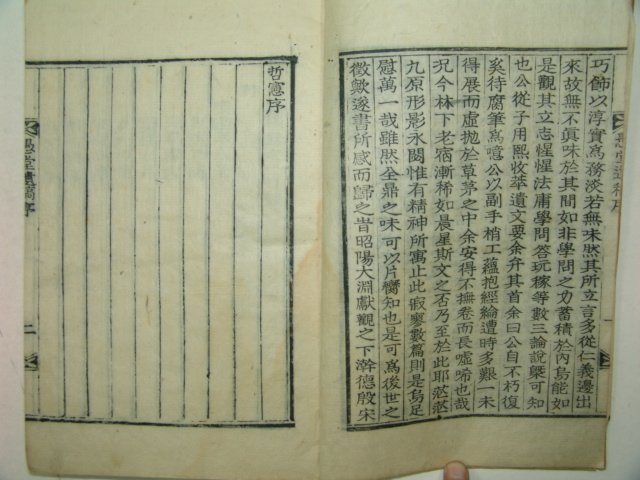 巧飾以淳實爲務淡若無味然其所立言多從仁義邊出
來故無不眞味於其間如非學問之力蓄積於內烏能如
是觀其立志惺惺法庸學問答玩稼等數三論說槩可知
也公從子用熙收萃遺文要余弁其首余曰公自不朽復
奚待腐筆爲噫公以副手梢工蘊抱經綸遭時多艱一未
得展而虛抛於草茅之中余安得不撫卷而長嘘唏也哉
況今林下老宿漸稀如晨星斯文之否乃至於此耶茫茫
九原形影永閟惟有精神所寓止此寂寥數篇則是烏足
慰萬一哉雖然全鼎之味可以片臠知也是可爲後世之
徵歟遂書所感而歸之旹昭陽大淵獻觀之下澣德殷宋
哲憲序
堂遺稿序
二